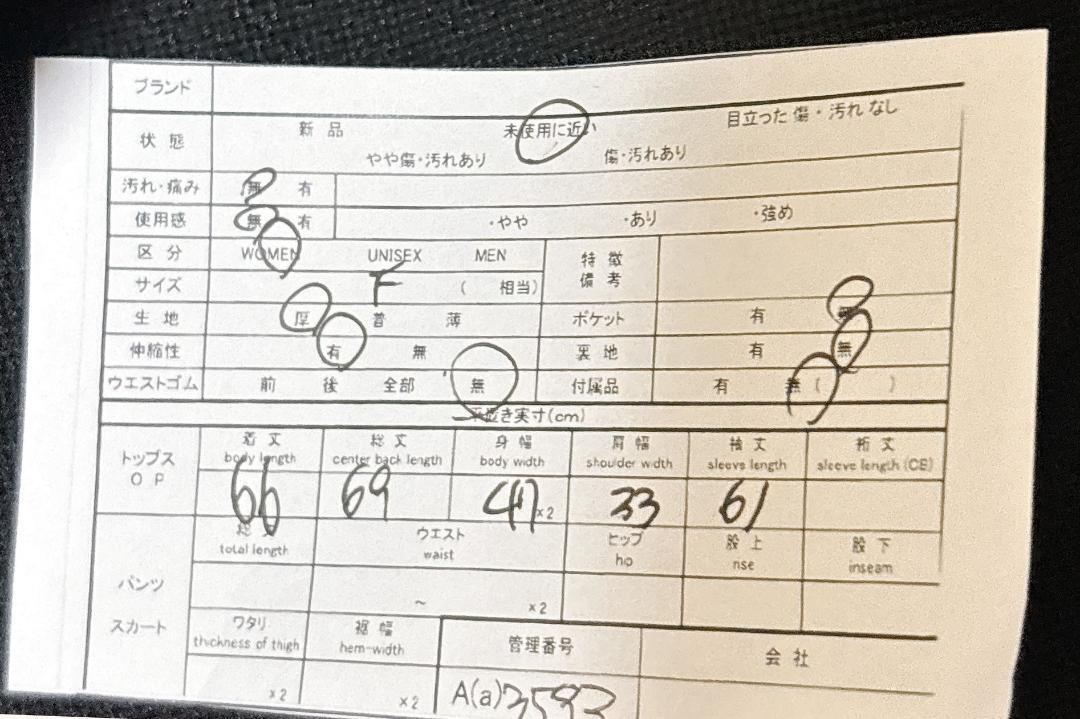 ブランド
状態 新品 未使用に近い 目立った傷・汚れなし
やや傷・汚れあり 傷・汚れあり
汚れ・痛み 無 有
使用感 無 有 ・やや ・あり ・強め
区分 WOMEN UNISEX MEN 特徴
備考
サイズ F ( 相当)
生地 厚 普 薄 ポケット 有 無
伸縮性 有 無 裏地 有 無
ウエストゴム 前 後 全部 無 付属品 有 無 ( )
平置き実寸(cm)
トップス
OP
着丈 総丈 身幅 肩幅 袖丈 裄丈
body length center back length body width shoulder width sleeve length sleeve length (CB)
66 69 ×2 33 61
総丈 ウエスト ヒップ 股上 股下
total length waist hip rise inseam
パンツ
~ ×2
スカート
ワタリ 裾幅 管理番号 会社
thickness of thigh hem-width
×2 ×2 A(a)